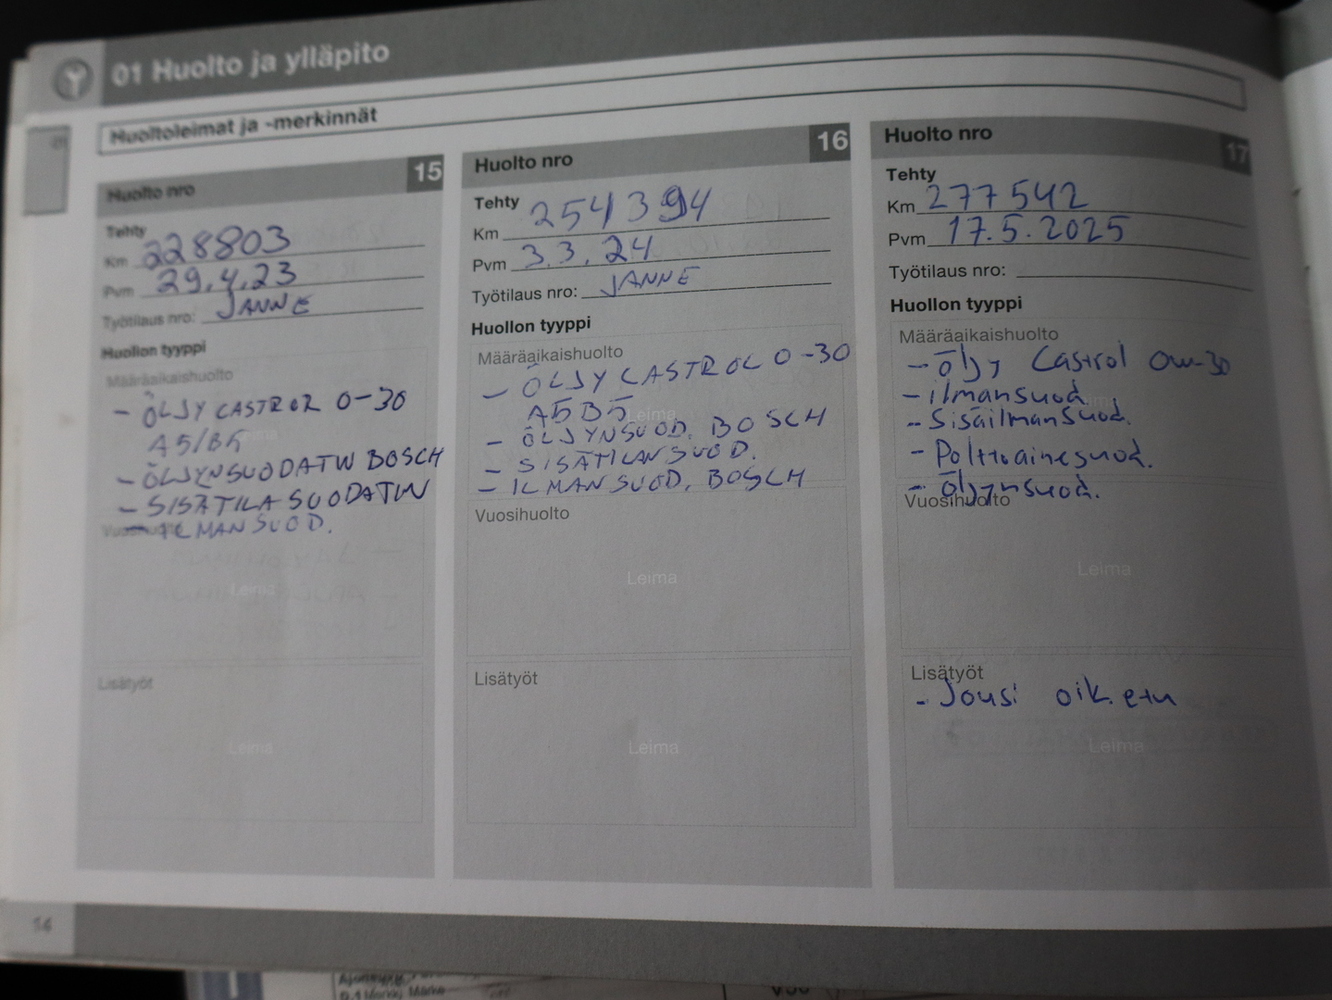 01 Huolto ja ylläpito
Huoltoleimat ja -merkinnät
01
Huolto nro 15
Tehty
Km 228803
Pvm 29.4.23
Työtilaus nro: JANNE
Huollon tyyppi
Määräaikaishuolto
- ÖLJY CASTROL 0-30
A5/B5
Leima
- ÖLJYNSUODATIN BOSCH
- SISÄTILA SUODATIN
Vuosihuolto
- ILMANSUOD.
Leima
Lisätyöt
Leima
Huolto nro 16
Tehty
Km 254394
Pvm 3.3.24
Työtilaus nro: JANNE
Huollon tyyppi
Määräaikaishuolto
- ÖLJY CASTROL 0-30
A5B5
Leima
- ÖLJYNSUOD. BOSCH
- SISÄTILANSUOD.
- ILMANSUOD. BOSCH
Vuosihuolto
Leima
Lisätyöt
Leima
Huolto nro 17
Tehty
Km 277542
Pvm 17.5.2025
Työtilaus nro:
Huollon tyyppi
Määräaikaishuolto
- Öljy Castrol 0w-30
- ilmansuod.
- Sisäilmansuod.
- Polttoainesuod.
- Öljynsuod.
Vuosihuolto
Leima
Lisätyöt
- Jousi oik. etu
Leima
14
V50